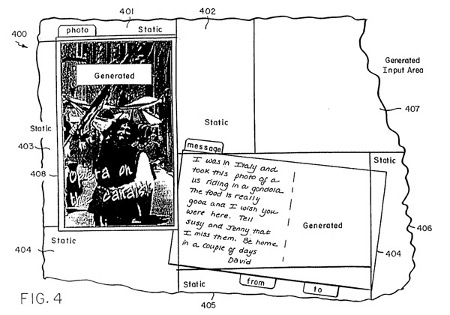 401
402
400
photo
Static
Generated
Generated
Input Area
407
Static
403
Static
message
Static
408
opera on
I was in Italy and
took this photo of a
us riding in a gondola.
The food is really
good and I wish you
were here. Tell
Susy and Jenny that
I miss them. Be home
in a couple of days
David
Generated
406
404
Static
404
Static
from
to
405
FIG. 4